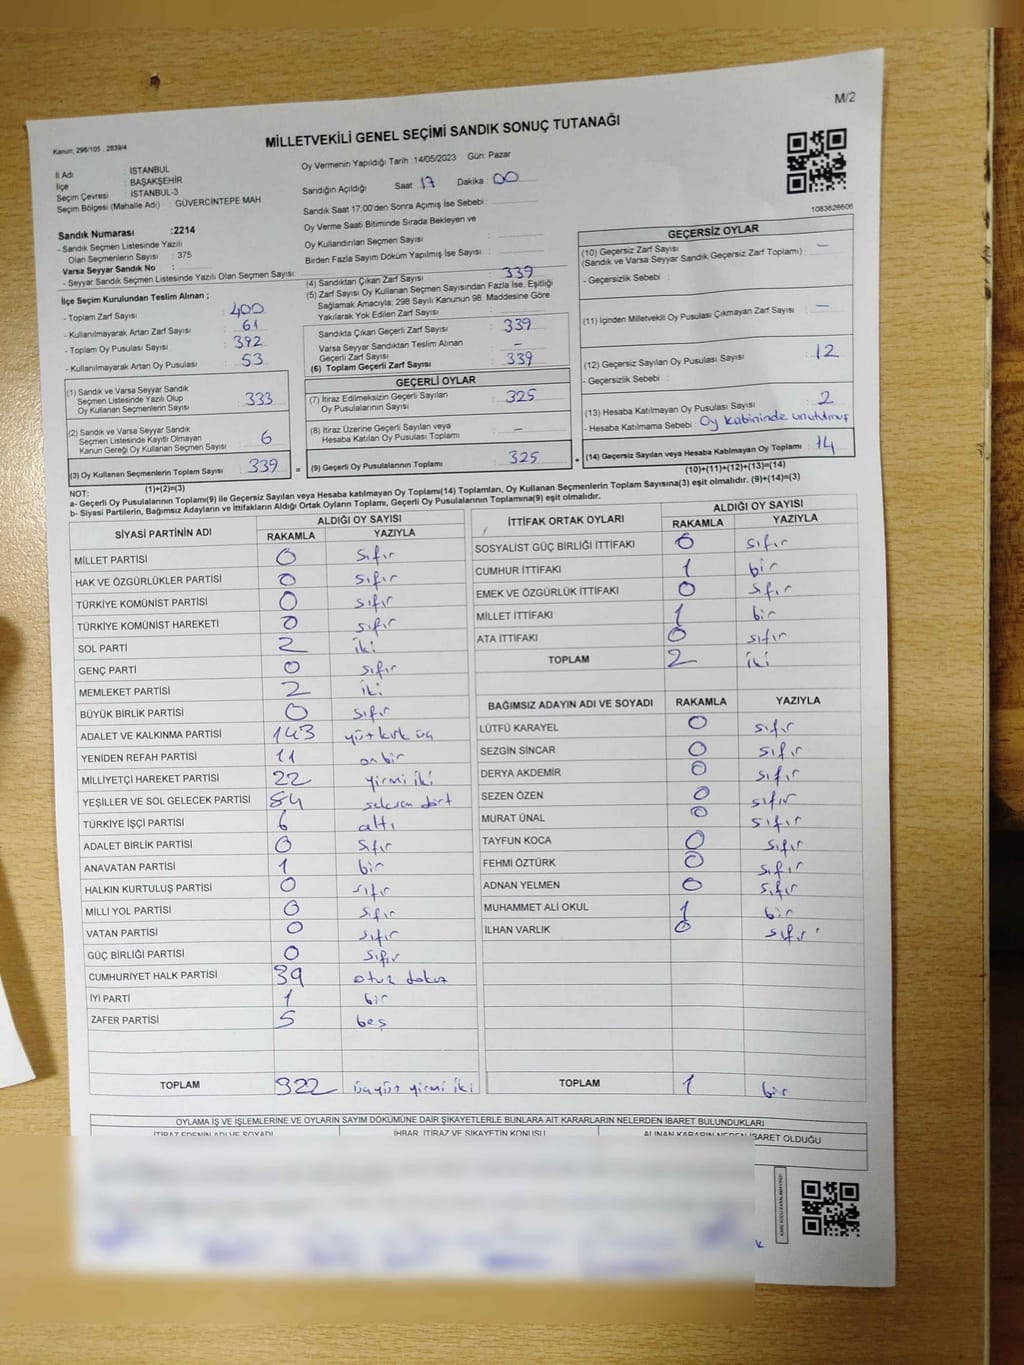 M/2
MİLLETVEKİLİ GENEL SEÇİMİ SANDIK SONUÇ TUTANAĞI
Kanun, 298/105 . 2839/4
İl Adı : İSTANBUL
İlçe : BAŞAKŞEHİR
Seçim Çevresi : İSTANBUL-3
Seçim Bölgesi (Mahalle Adı) : GÜVERCİNTEPE MAH.
Sandık Numarası :2214
- Sandık Seçmen Listesinde Yazılı
Olan Seçmenlerin Sayısı : 375
Varsa Seyyar Sandık No :
- Seyyar Sandık Seçmen Listesinde Yazılı Olan Seçmen Sayısı:
Oy Vermenin Yapıldığı Tarih :14/05/2023 Gün: Pazar
Sandığın Açıldığı Saat :17 Dakika : 00
Sandık Saat 17:00'den Sonra Açımış İse Sebebi :
Oy Verme Saati Bitiminde Sırada Bekleyen ve
Oy Kullandırılan Seçmen Sayısı :
Birden Fazla Sayım Döküm Yapılmış İse Sayısı :
1083626606
İlçe Seçim Kurulundan Teslim Alınan ;
- Toplam Zarf Sayısı : 400
- Kullanılmayarak Artan Zarf Sayısı : 61
- Toplam Oy Pusulası Sayısı : 392
- Kullanılmayarak Artan Oy Pusulası : 53
(1) Sandık ve Varsa Seyyar Sandık
Seçmen Listesinde Yazılı Olup
Oy Kullanan Seçmenlerin Sayısı : 333
(2) Sandık ve Varsa Seyyar Sandık
Seçmen Listesinde Kayıtlı Olmayan
Kanun Gereği Oy Kullanan Seçmen Sayısı : 6
(3) Oy Kullanan Seçmenlerin Toplam Sayısı : 339
(1)+(2)=(3)
(4) Sandıktan Çıkan Zarf Sayısı : 339
(5) Zarf Sayısı Oy Kullanan Seçmen Sayısından Fazla İse, Eşitliği
Sağlamak Amacıyla; 298 Sayılı Kanunun 98. Maddesine Göre
Yakılarak Yok Edilen Zarf Sayısı :
Sandıkta Çıkan Geçerli Zarf Sayısı : 339
Varsa Seyyar Sandıktan Teslim Alınan
Geçerli Zarf Sayısı : -
(6) Toplam Geçerli Zarf Sayısı : 339
GEÇERLİ OYLAR
(7) İtiraz Edilmeksizin Geçerli Sayılan
Oy Pusulalarının Sayısı : 325
(8) İtiraz Üzerine Geçerli Sayılan veya
Hesaba Katılan Oy Pusulası Toplamı : -
(9) Geçerli Oy Pusulalarının Toplamı : 325
GEÇERSİZ OYLAR
(10) Geçersiz Zarf Sayısı
(Sandık ve Varsa Seyyar Sandık Geçersiz Zarf Toplamı) : -
- Geçersizlik Sebebi :
(11) İçinden Milletvekili Oy Pusulası Çıkmayan Zarf Sayısı : -
(12) Geçersiz Sayılan Oy Pusulası Sayısı : 12
- Geçersizlik Sebebi :
(13) Hesaba Katılmayan Oy Pusulası Sayısı : 2
- Hesaba Katılmama Sebebi : Oy kabininde unutulmuş
(14) Geçersiz Sayılan veya Hesaba Katılmayan Oy Toplamı : 14
(10)+(11)+(12)+(13)=(14)
NOT:
a- Geçerli Oy Pusulalarının Toplamı(9) ile Geçersiz Sayılan veya Hesaba katılmayan Oy Toplamı(14) Toplamları, Oy Kullanan Seçmenlerin Toplam Sayısına(3) eşit olmalıdır. (9)+(14)=(3)
b- Siyasi Partilerin, Bağımsız Adayların ve İttifakların Aldığı Ortak Oyların Toplamı, Geçerli Oy Pusulalarının Toplamına(9) eşit olmalıdır.
SİYASİ PARTİNİN ADI ALDIĞI OY SAYISI
RAKAMLA YAZIYLA
MİLLET PARTİSİ 0 sıfır
HAK VE ÖZGÜRLÜKLER PARTİSİ 0 sıfır
TÜRKİYE KOMÜNİST PARTİSİ 0 sıfır
TÜRKİYE KOMÜNİST HAREKETİ 0 sıfır
SOL PARTİ 2 iki
GENÇ PARTİ 0 sıfır
MEMLEKET PARTİSİ 2 iki
BÜYÜK BİRLİK PARTİSİ 0 sıfır
ADALET VE KALKINMA PARTİSİ 143 yüz kırk üç
YENİDEN REFAH PARTİSİ 11 on bir
MİLLİYETÇİ HAREKET PARTİSİ 22 yirmi iki
YEŞİLLER VE SOL GELECEK PARTİSİ 84 seksen dört
TÜRKİYE İŞÇİ PARTİSİ 6 altı
ADALET BİRLİK PARTİSİ 0 sıfır
ANAVATAN PARTİSİ 1 bir
HALKIN KURTULUŞ PARTİSİ 0 sıfır
MİLLİ YOL PARTİSİ 0 sıfır
VATAN PARTİSİ 0 sıfır
GÜÇ BİRLİĞİ PARTİSİ 0 sıfır
CUMHURİYET HALK PARTİSİ 39 otuz dokuz
İYİ PARTİ 1 bir
ZAFER PARTİSİ 5 beş
TOPLAM 322 üçyüz yirmi iki
İTTİFAK ORTAK OYLARI ALDIĞI OY SAYISI
RAKAMLA YAZIYLA
SOSYALİST GÜÇ BİRLİĞİ İTTİFAKI 0 sıfır
CUMHUR İTTİFAKI 1 bir
EMEK VE ÖZGÜRLÜK İTTİFAKI 0 sıfır
MİLLET İTTİFAKI 1 bir
ATA İTTİFAKI 0 sıfır
TOPLAM 2 iki
BAĞIMSIZ ADAYIN ADI VE SOYADI RAKAMLA YAZIYLA
LÜTFÜ KARAYEL 0 sıfır
SEZGİN SİNCAR 0 sıfır
DERYA AKDEMİR 0 sıfır
SEZEN ÖZEN 0 sıfır
MURAT ÜNAL 0 sıfır
TAYFUN KOCA 0 sıfır
FEHMİ ÖZTÜRK 0 sıfır
ADNAN YELMEN 0 sıfır
MUHAMMET ALİ OKUL 1 bir
İLHAN VARLIK 0 sıfır
TOPLAM 1 bir
OYLAMA İŞ VE İŞLEMLERİNE VE OYLARIN SAYIM DÖKÜMÜNE DAİR ŞİKAYETLERLE BUNLARA AİT KARARLARIN NELERDEN İBARET BULUNDUKLARI
İTİRAZ EDENİN ADI VE SOYADI İHBAR, İTİRAZ VE ŞİKAYETİN KONUSU ALINAN KARARIN NEDEN İBARET OLDUĞU